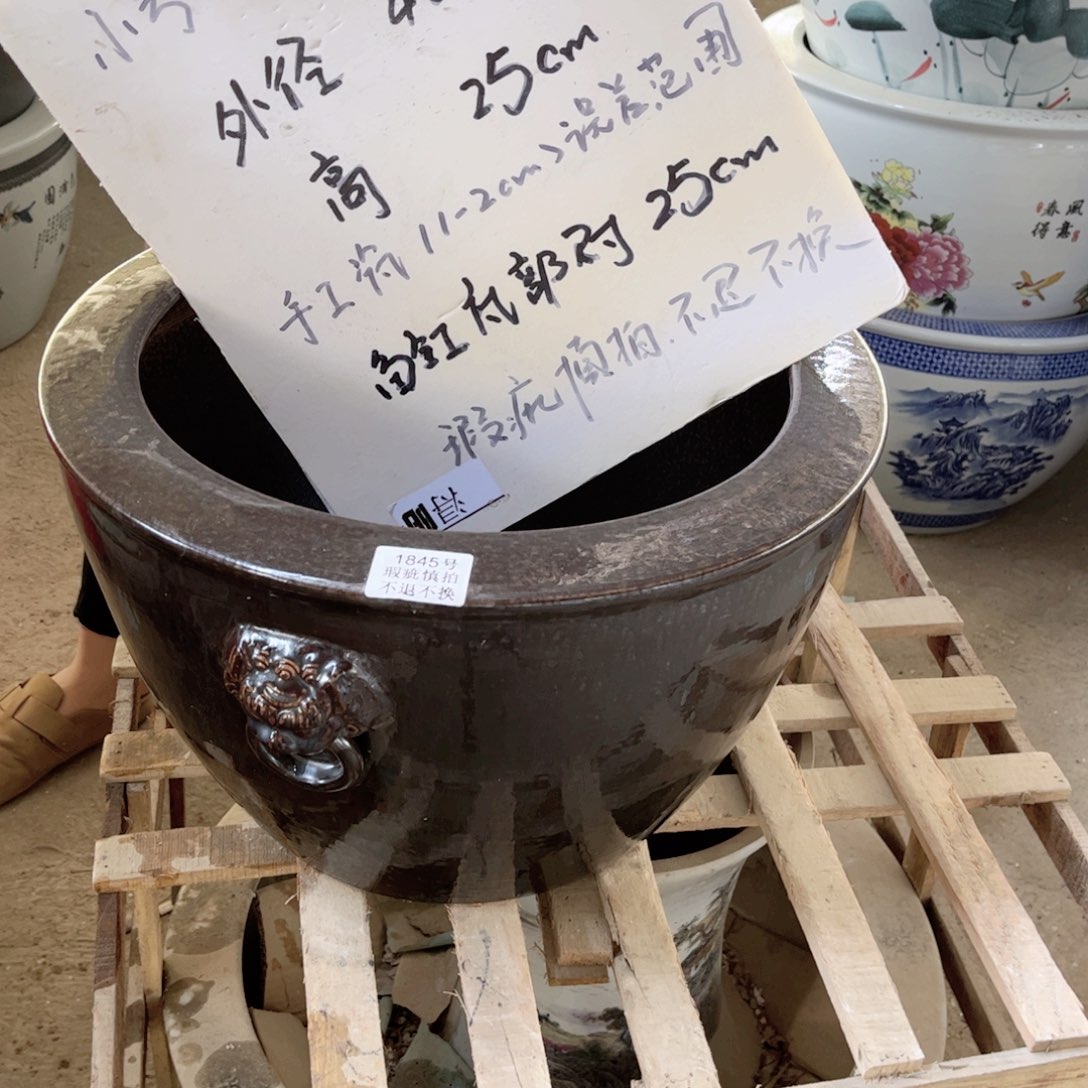 小号
外径 4
高 25cm
手工瓷 11-2cm>误差范围
鱼缸 郭 25cm
瑕疵慎拍.不退不换
1845号
瑕疵慎拍
不退不换
春风
得意